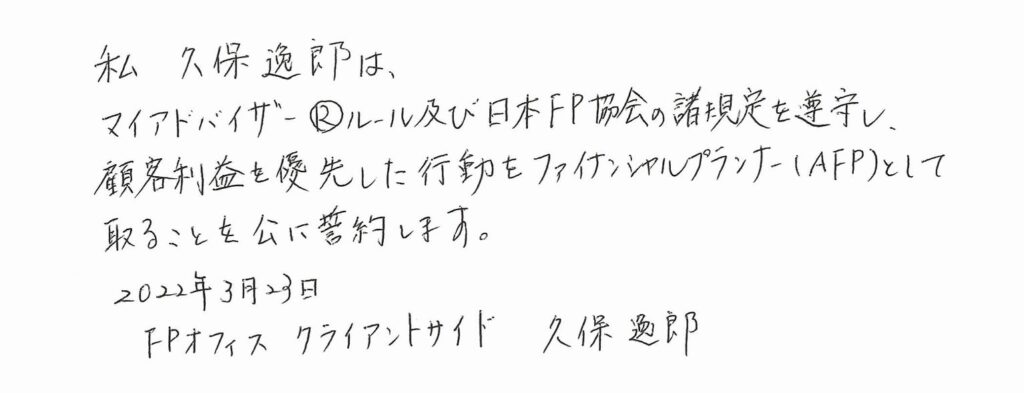 私 久保逸郎は、
マイアドバイザー®ルール及び日本FP協会の諸規定を遵守し、
顧客利益を優先した行動をファイナンシャルプランナー(AFP)として
取ることを公に誓約します。
2022年3月23日
FPオフィス クライアントサイド 久保逸郎